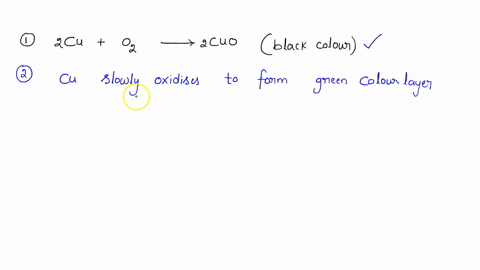 ① 2Cu + O₂ ⟶ 2CuO (black colour) ✓
② Cu slowly oxidises to form green colour layer